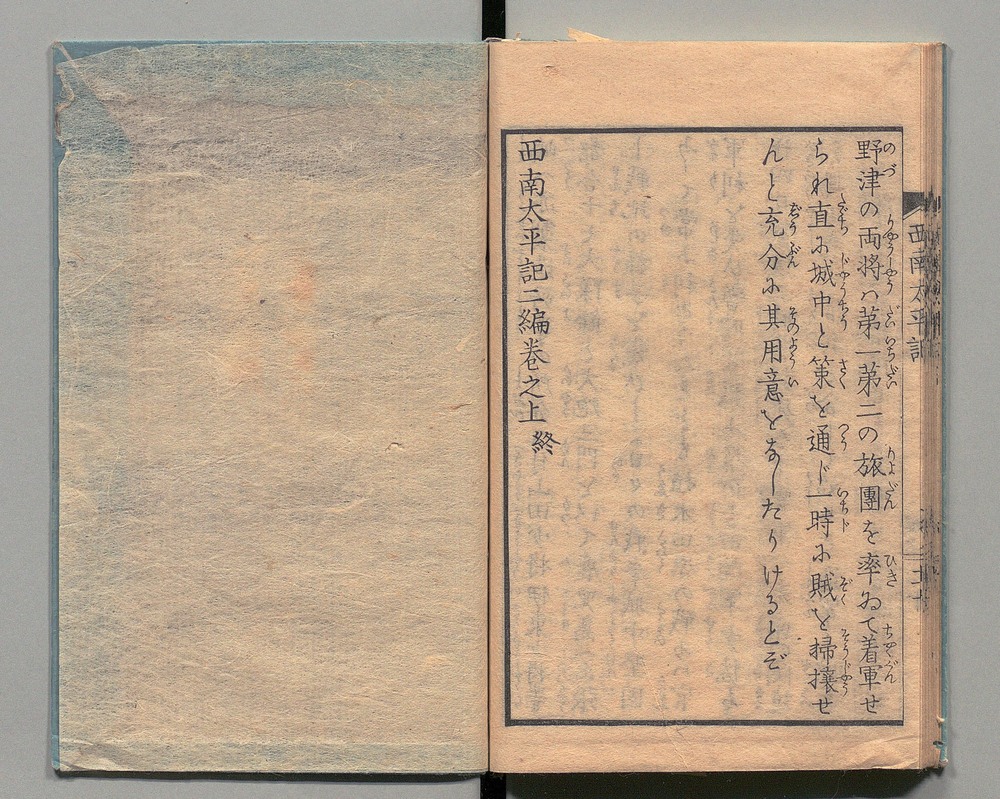 野津の両将ハ第一第二の旅團を率ゐて着軍せ
られ直に城中と策を通じ一時に賊を掃攘せ
んと充分に其用意をなしたりけるとぞ
西南太平記二編巻之上 終
西南太平記